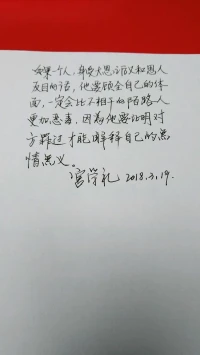 如果一个人，身受大恩而后又和恩人
反目的话，他要顾全自己的体
面，一定会比不相干的陌路人
更加恶毒，因为他要证明对
方罪过才能解释自己的无
情无义。
2018.3.19.